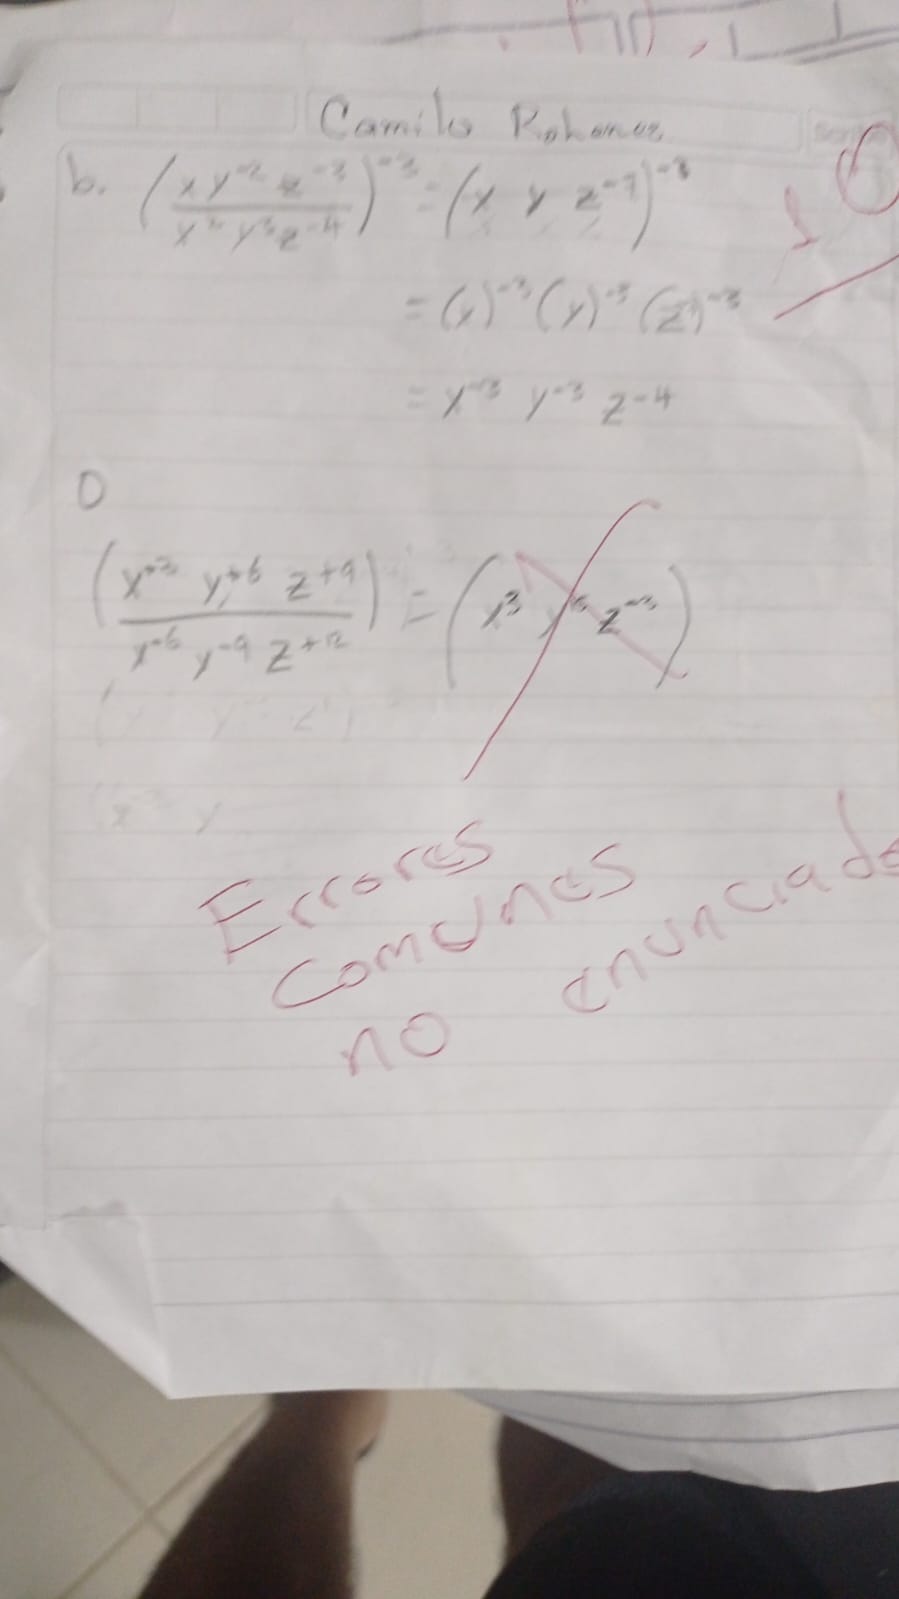 Camilo
b. (x y⁻² z⁻³ / x² y³ z⁻⁴)⁻³ = (x y z⁻⁷)⁻³
= (x)⁻³ (y)⁻³ (z⁻⁷)⁻³
= x⁻³ y⁻³ z⁻⁴
O
(x⁻³ y⁺⁶ z⁺⁹ / x⁻⁶ y⁻⁹ z⁺¹²) = (x³ y z⁻³)
Errores
comunes
no enunciado